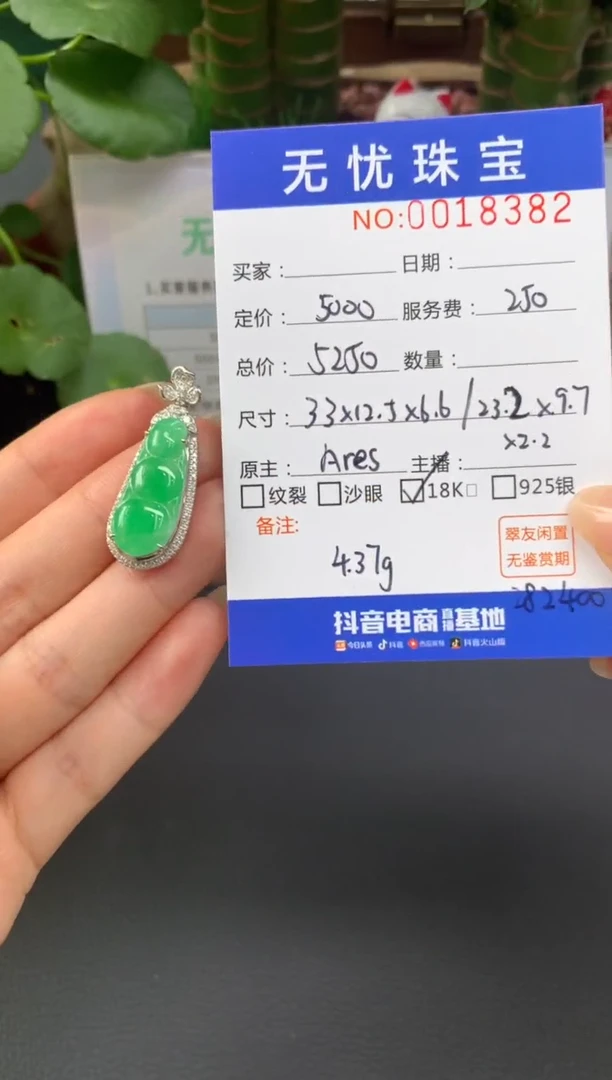 无忧珠宝
NO:0018382
买家: 日期:
定价: 5000 服务费: 250
总价: 5250 数量:
尺寸: 33×12.5×6.6/23.2×9.7
×2.2
原主: Ares 主播:
纹裂 沙眼 18K 925银
备注:
翠友闲置
无鉴赏期
4.37g
282400
抖音电商直播基地
今日头条 抖音 西瓜视频 抖音火山版
无